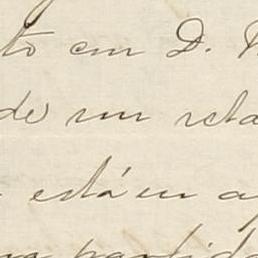 to em D.
de um reta
está em a
partid